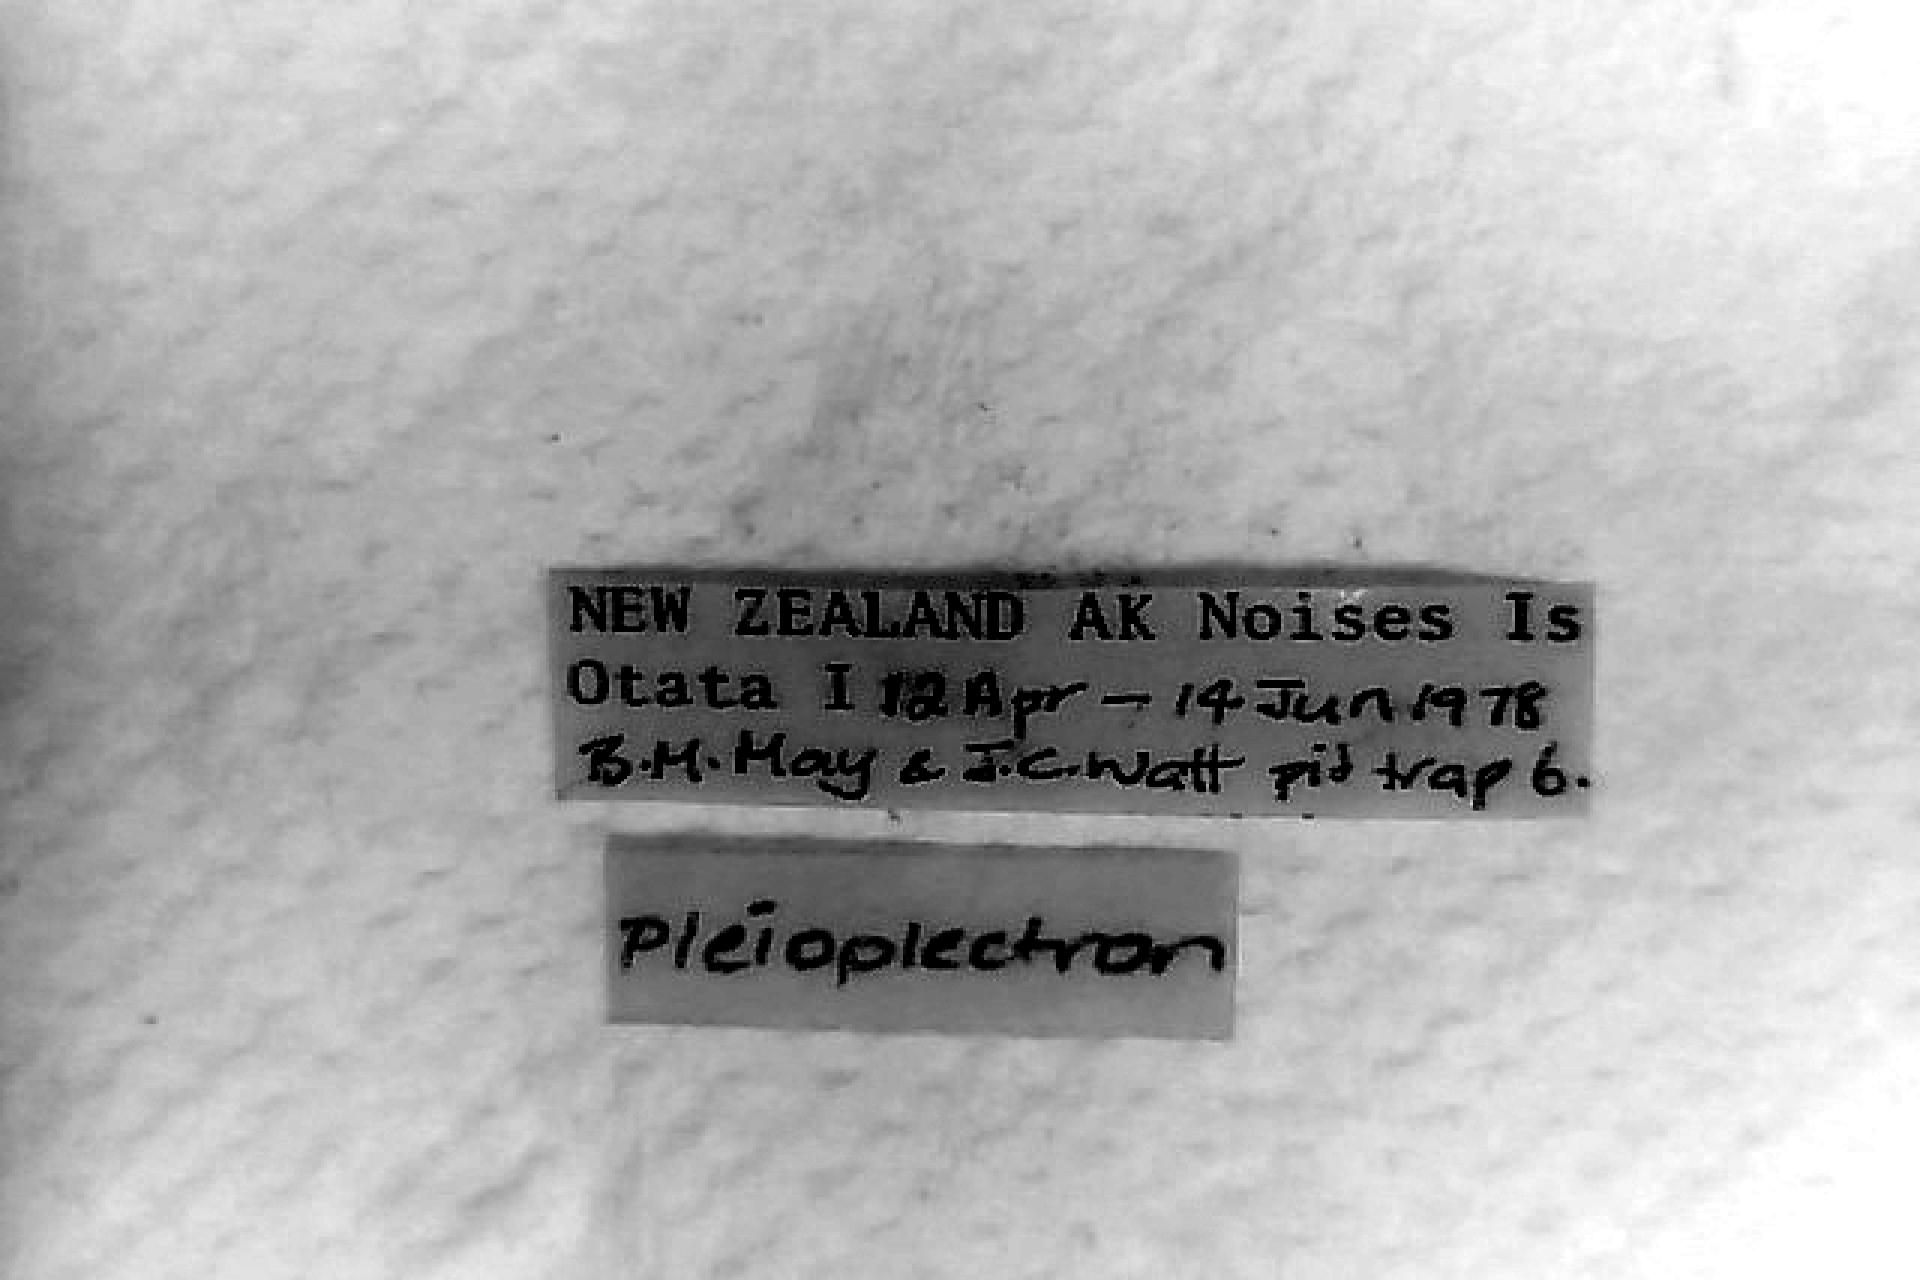 NEW ZEALAND AK Noises Is
Otata I 12 Apr – 14 Jun 1978
B.M. May & J.C. Watt pit trap 6.
Pleioplectron